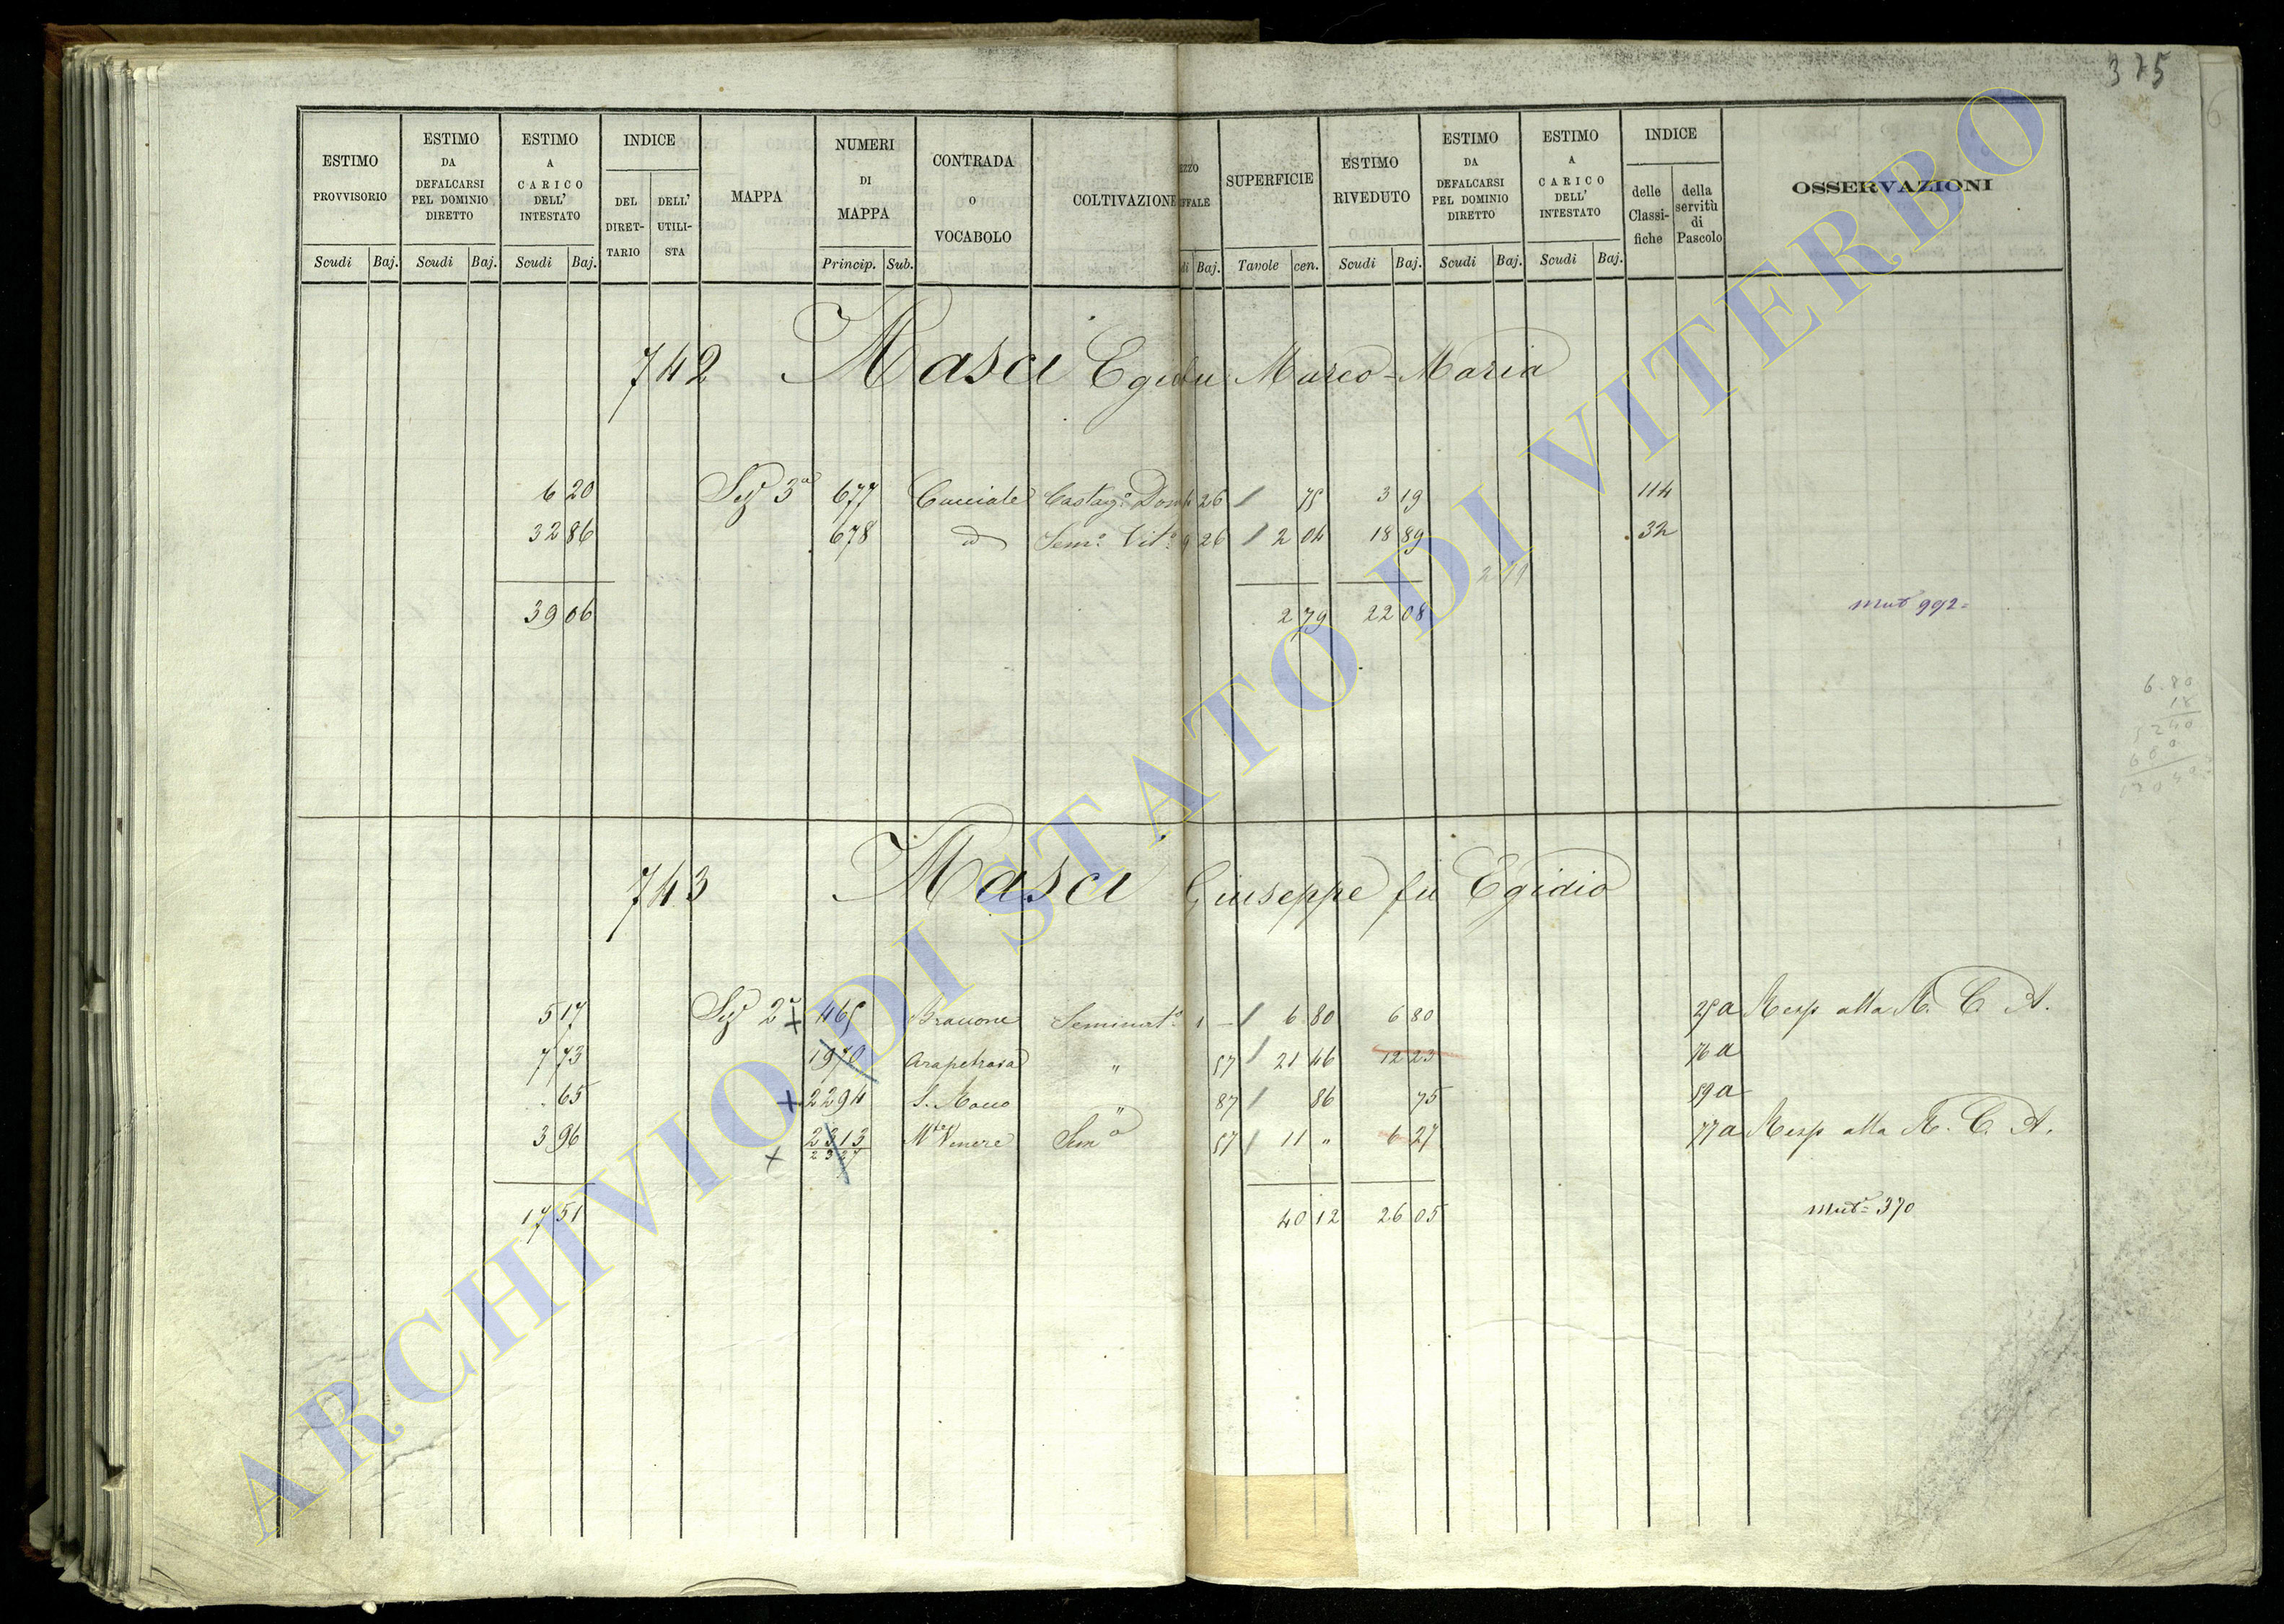 375
ESTIMO PROVVISORIO Scudi Baj.
ESTIMO DA DEFALCARSI PEL DOMINIO DIRETTO Scudi Baj.
ESTIMO A CARICO DELL' INTESTATO Scudi Baj.
INDICE DEL DIRET-TARIO DELL' UTILI-STA
MAPPA
NUMERI DI MAPPA Princip. Sub.
CONTRADA o VOCABOLO
COLTIVAZIONE
EZZO IFFALE di Baj.
SUPERFICIE Tavole cen.
ESTIMO RIVEDUTO Scudi Baj.
ESTIMO DA DEFALCARSI PEL DOMINIO DIRETTO Scudi Baj.
ESTIMO A CARICO DELL' INTESTATO Scudi Baj.
INDICE delle Classi-fiche della servitù di Pascolo
OSSERVAZIONI
742 Masci Egidu Marco-Maria
6 20 Sez 3a 677 Castago Dom 4 26 / 75 3 19 114
32 86 678 d Semo Vito 9 26 / 2 04 18 89 32
2 11
39 06 2 79 22 08 mut 992
6.80
743 Masci Giuseppe fu Egidio
5 17 Sez 2a + 465 Braccone Seminato 1 - / 6 80 6 80 25a Resp alla R. C. A.
7 73 1970 Arapetrara " 57 / 21 46 12 23 76a
65 + 2294 S. Rocco " 87 / 86 75 59a
3 96 2313 Mte Venere Semo 57 / 11 " 6 27 77a Resp alla R. C. A.
+ 2327
17 51 40 12 26 05 muta 370
ARCHIVIO DI STATO DI VITERBO